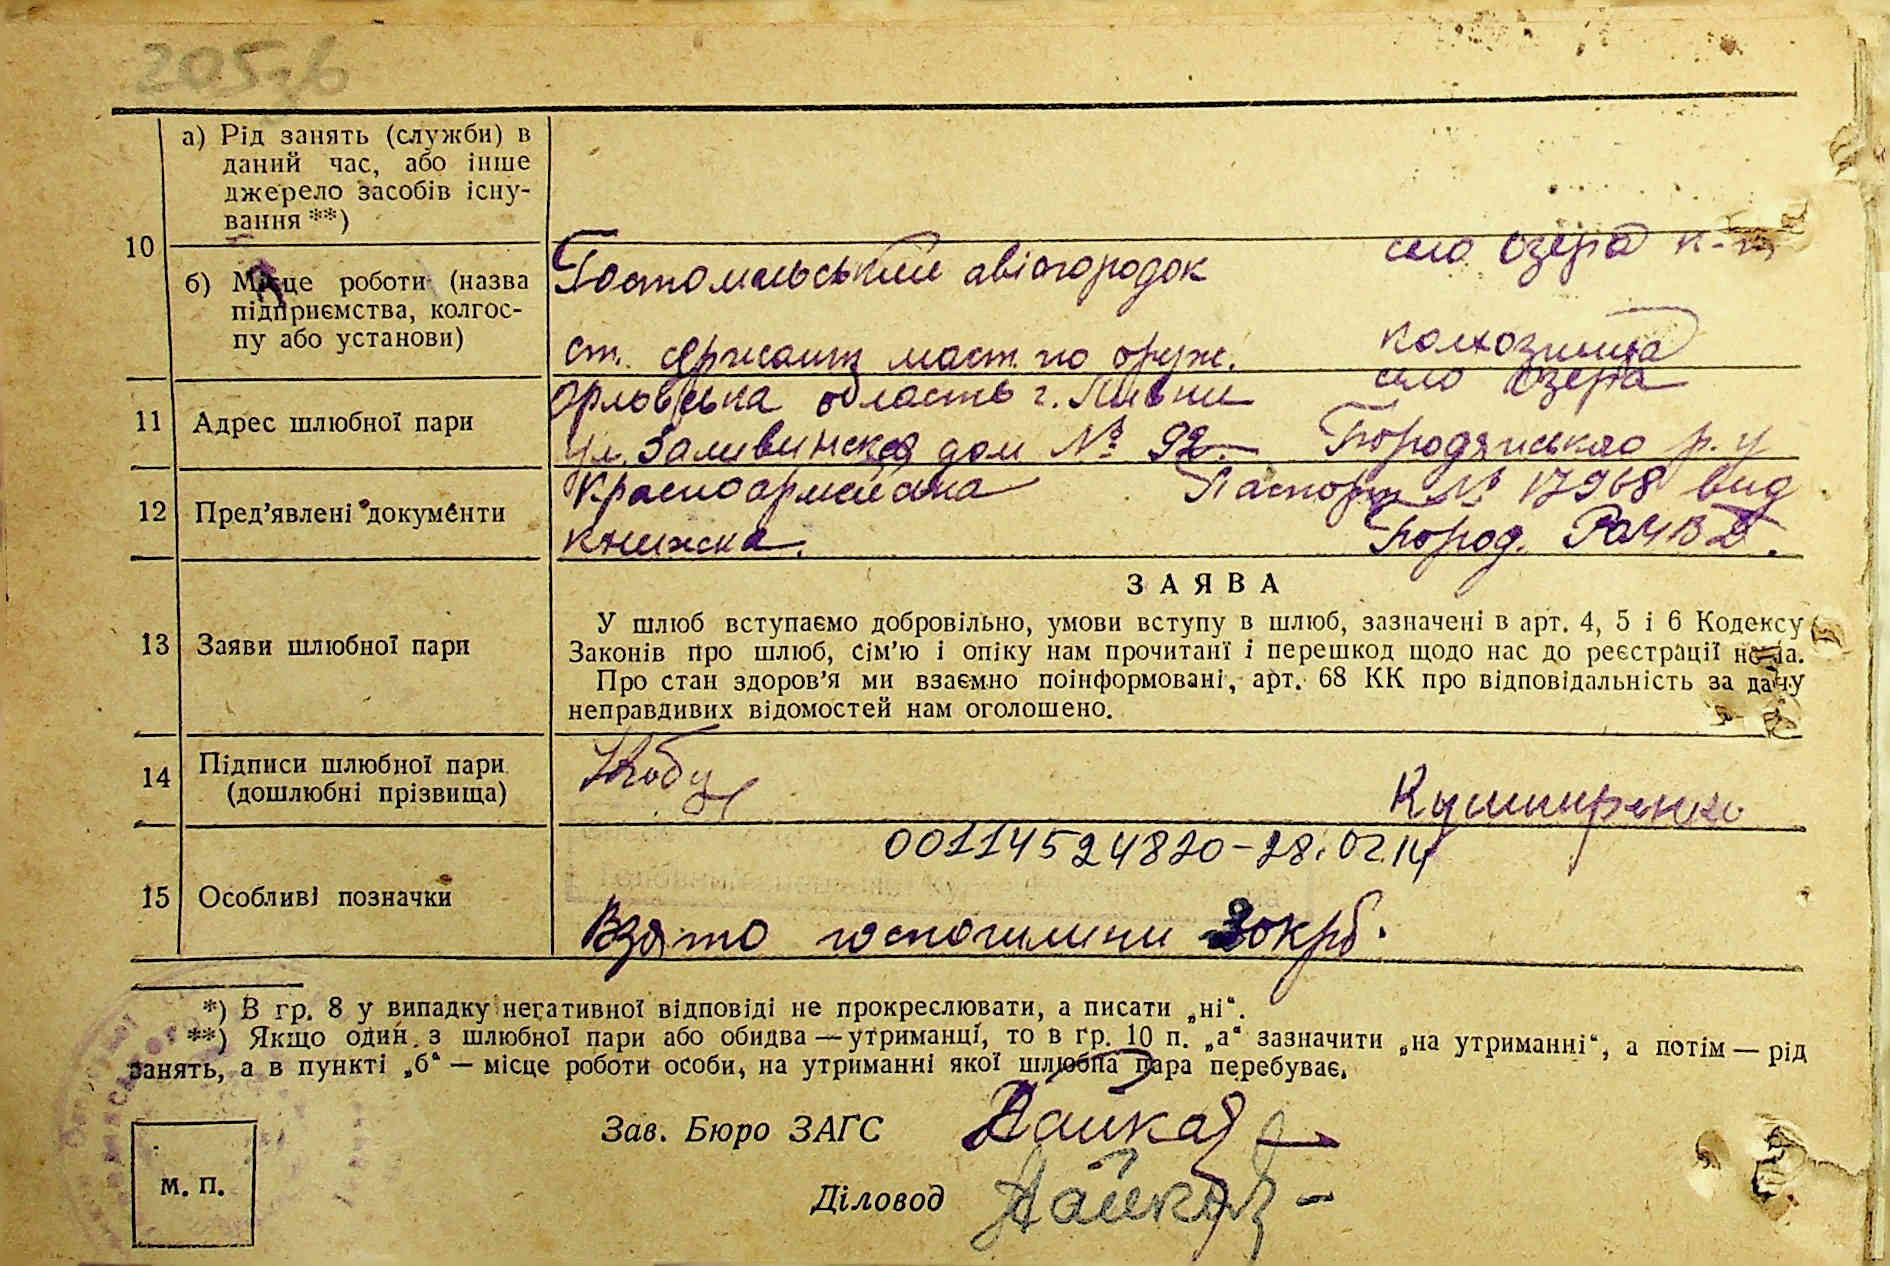 205зв
а) Рід занять (служби) в
даний час, або інше
джерело засобів існу-
вання **)
10
б) Місце роботи (назва
підприємства, колгос-
пу або установи)
Гостомильський авіогородок
село Озера к-п
ст. сержант маст. по оруж.
колхозниця
11 Адрес шлюбної пари
Орловська область г. Ливни
село Озера
ул. Заливинская дом № 92.
Бородянського р. у
12 Пред'явлені документи
Красноармейська
Паспорт № 17968 вид
книжка.
Бород. РОМВД.
ЗАЯВА
13 Заяви шлюбної пари
У шлюб вступаємо добровільно, умови вступу в шлюб, зазначені в арт. 4, 5 і 6 Кодексу
Законів про шлюб, сім'ю і опіку нам прочитані і перешкод щодо нас до реєстрації нема.
Про стан здоров'я ми взаємно поінформовані, арт. 68 КК про відповідальність за дачу
неправдивих відомостей нам оголошено.
14 Підписи шлюбної пари
(дошлюбні прізвища)
Кушниренко
00114524820-28.02.14
15 Особливі позначки
Взято госпошлини 30крб.
*) В гр. 8 у випадку негативної відповіді не прокреслювати, а писати „ні“.
**) Якщо один з шлюбної пари або обидва — утриманці, то в гр. 10 п. „а“ зазначити „на утриманні“, а потім — рід
занять, а в пункті „б“ — місце роботи особи, на утриманні якої шлюбна пара перебуває.
Зав. Бюро ЗАГС
М. П.
Діловод